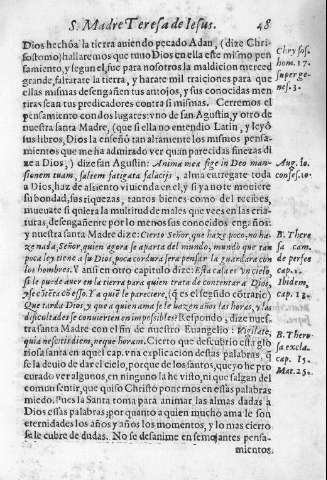 S. Madre Teresa de Iesus. 48
Dios hechó a la tierra auiendo pecado Adan, (dize Chri-
sostomo) hallaremos que tuuo Dios en ella este mismo pen
samiento, y segun esso fue para nosotros la maldicion merced
grande, faltarate la tierra, y harate mil traiciones para que
ellas mismas desengañen tus antojos, y sus conocidas men
tiras sean tus predicadores contra si mismas. Cerremos el
pensamiento con dos lugares: vno de san Agustin, y otro de
nuestra santa Madre, (que si ella no entendio Latin, y leyó
sus libros, Dios la enseñó tan altamente los mismos pensa-
mientos que me ha admirado ver quan parecidas finezas di
ze a Dios,) dize san Agustin: Anima mea fige in Deo man-
sionem tuam, saltem fatigata falacijs, alma entregate toda
a Dios, haz de assiento viuienda en el, y si ya no te mouiere
su bondad, sus riquezas, tantos bienes como del recibes,
mueuate si quiera la multitud de males que vees en las cria
turas, desengañente por lo menos sus conocidos engaños:
y nuestra santa Madre dize: Cierto Señor, que haze poco, no ha
ze nada, Señor, quien agora se aparta del mundo, mundo que tan
poca ley tiene a su Dios, poca cordura sera pensar la guardara con
los hombres. Y ansi en otro capitulo dize: Esta casa es vn cielo,
si le puede auer en la tierra para quien trata de contentar a Dios,
y se cōtēta cō esso. Y a quiē le pareciere, (q̄ es el segūdo cōtrario)
Que tarda Dios, y que a quien ama se le hazen años las horas, y las
dificultades se conuierten en impossibles? Respondo, dize nues-
tra santa Madre con el fin de nuestro Euangelio: Vigilate,
quia nescitis diem, neque horam. Cierto que descubrio esta glo
riosa santa en aquel cap. vna explicacion destas palabras, q̄
se la deuio de dar el cielo, porque de los santos, que yo he pro
curado ver algunos, en ninguno la he visto, ni que salgan del
comun sentir, que quiso Christo ponernos en essas palabras
miedo. Pues la Santa toma para animar las almas dadas a
Dios essas palabras; por quanto a quien mucho ama le son
eternidades los años y años los momentos, y lo mas cierto
se le cubre de dudas. No se desanime en semejantes pensa-
mientos.
Chrysos.
hom. 17.
super ge
nes. 3.
Aug. 10.
confes. 10.
B. There
sa cam.
de perfec
cap. 1.
Ibidem,
cap. 13.
B. There
sa excla.
cap. 15.
Mat. 25.